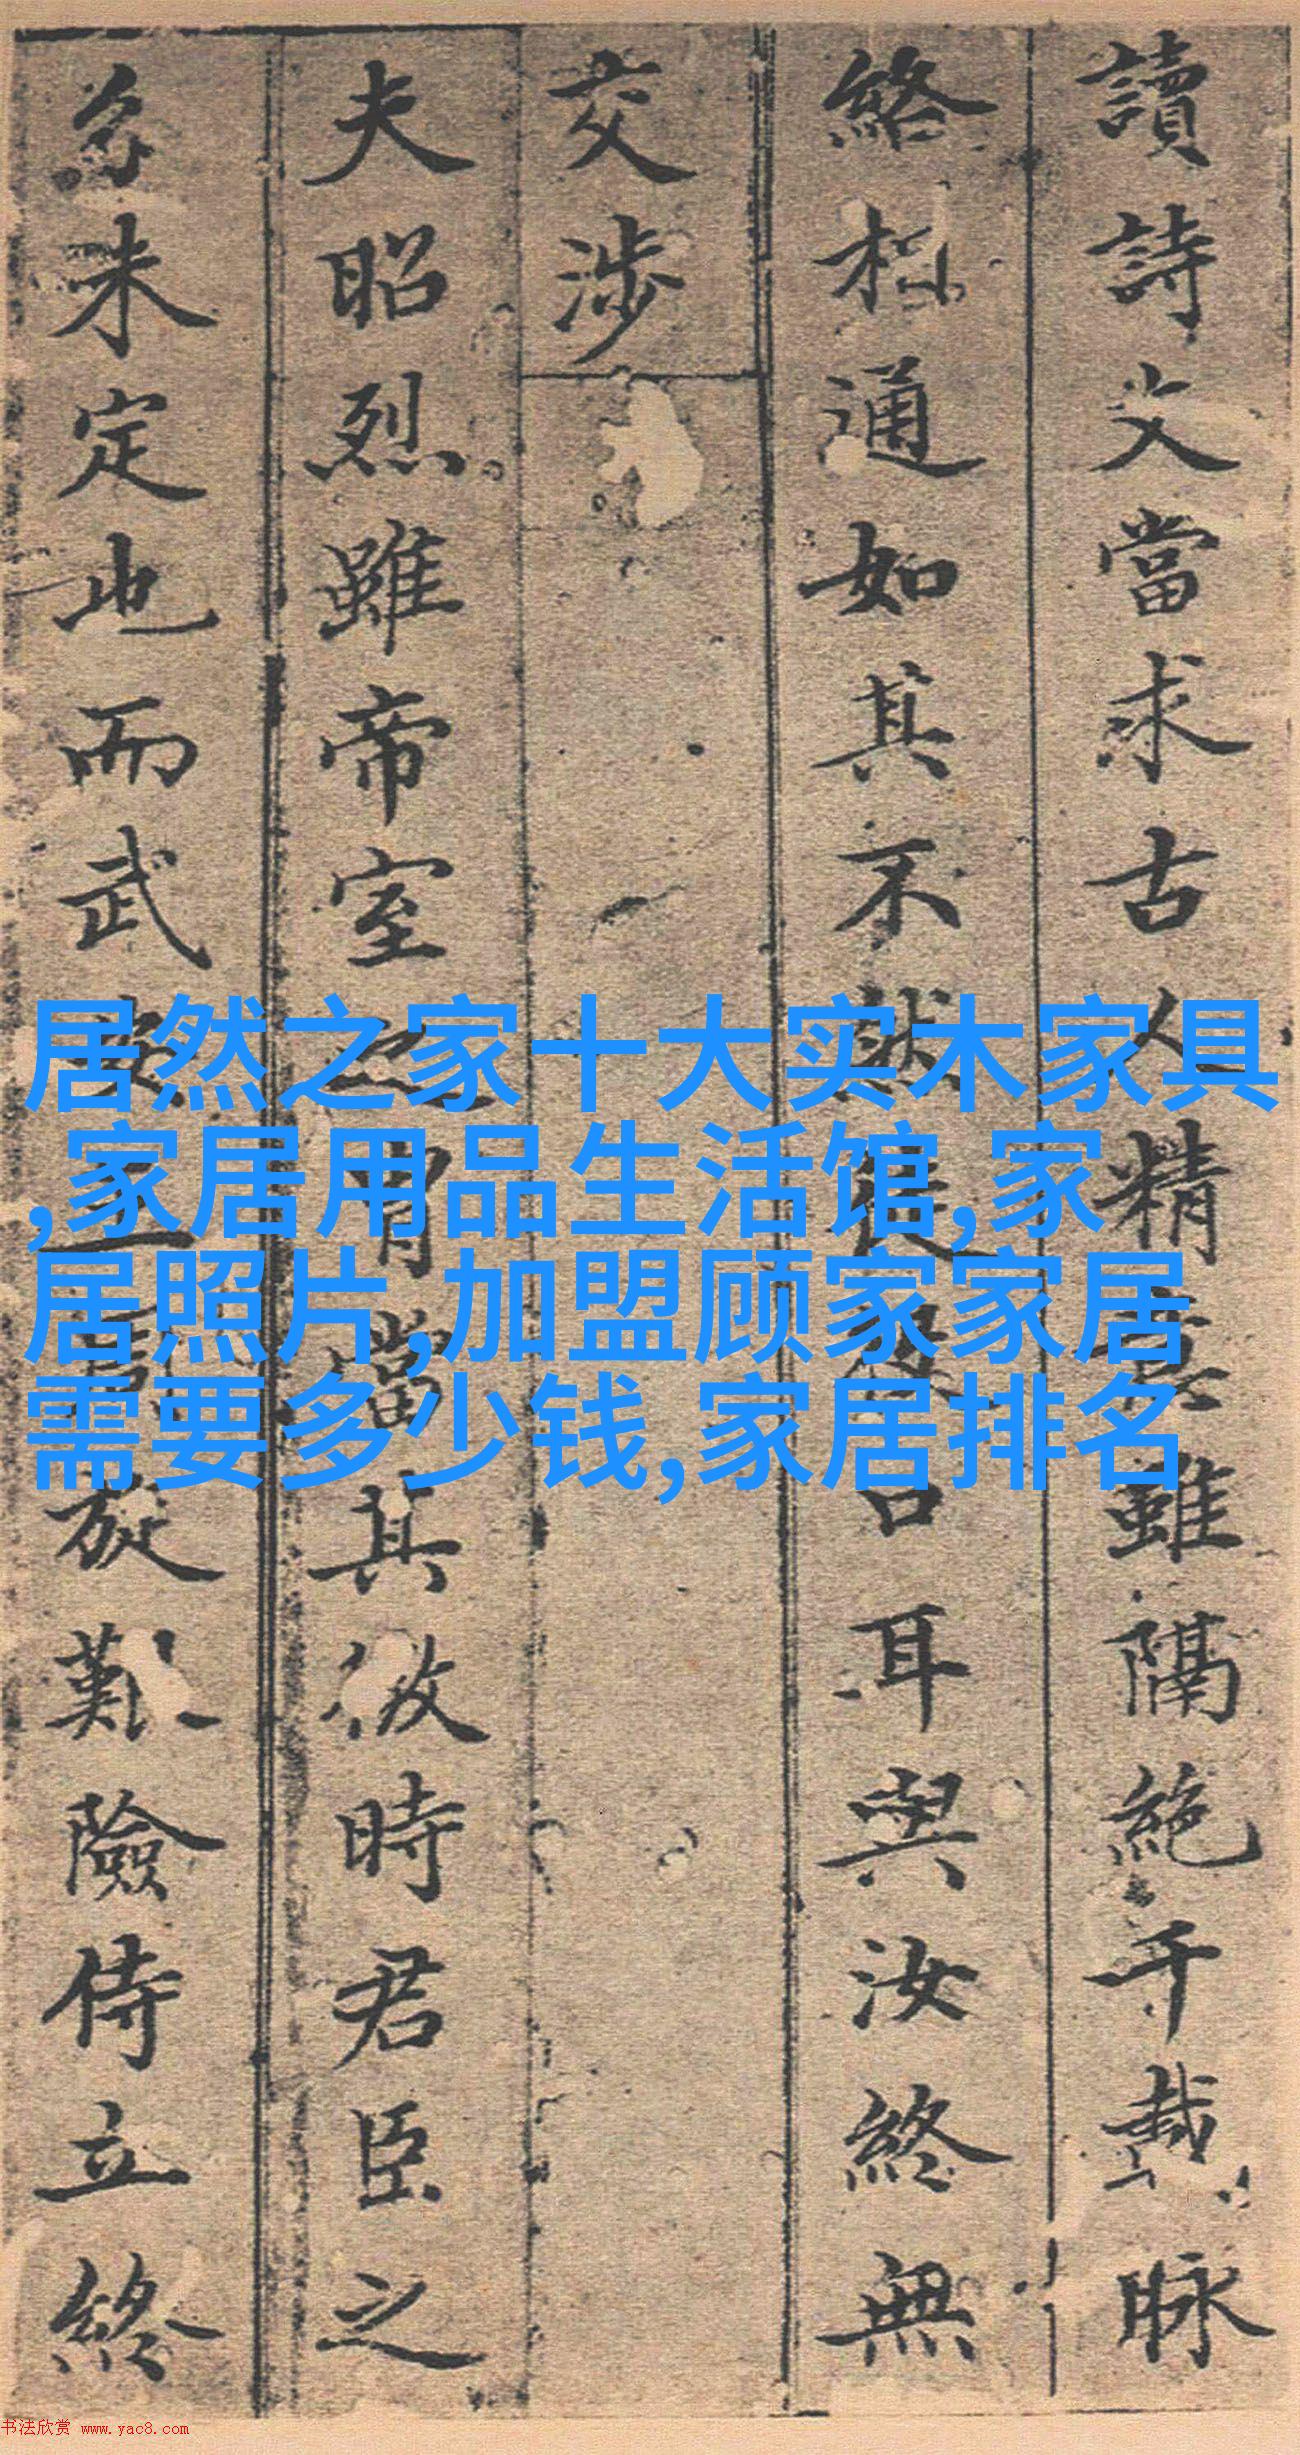 讀詩文當求古人精意雖隔絶千載脉
絡相通如其不然從得口耳與汝終無
交涉
夫昭烈雖帝室之胄當其微時君臣之
分未定也而武安王周旋艱險侍立終
居然之家十大实木家具
,家居用品生活馆,家
居照片,加盟顾家家居
需要多少钱,家居排名
书法欣赏 www.yac8.com